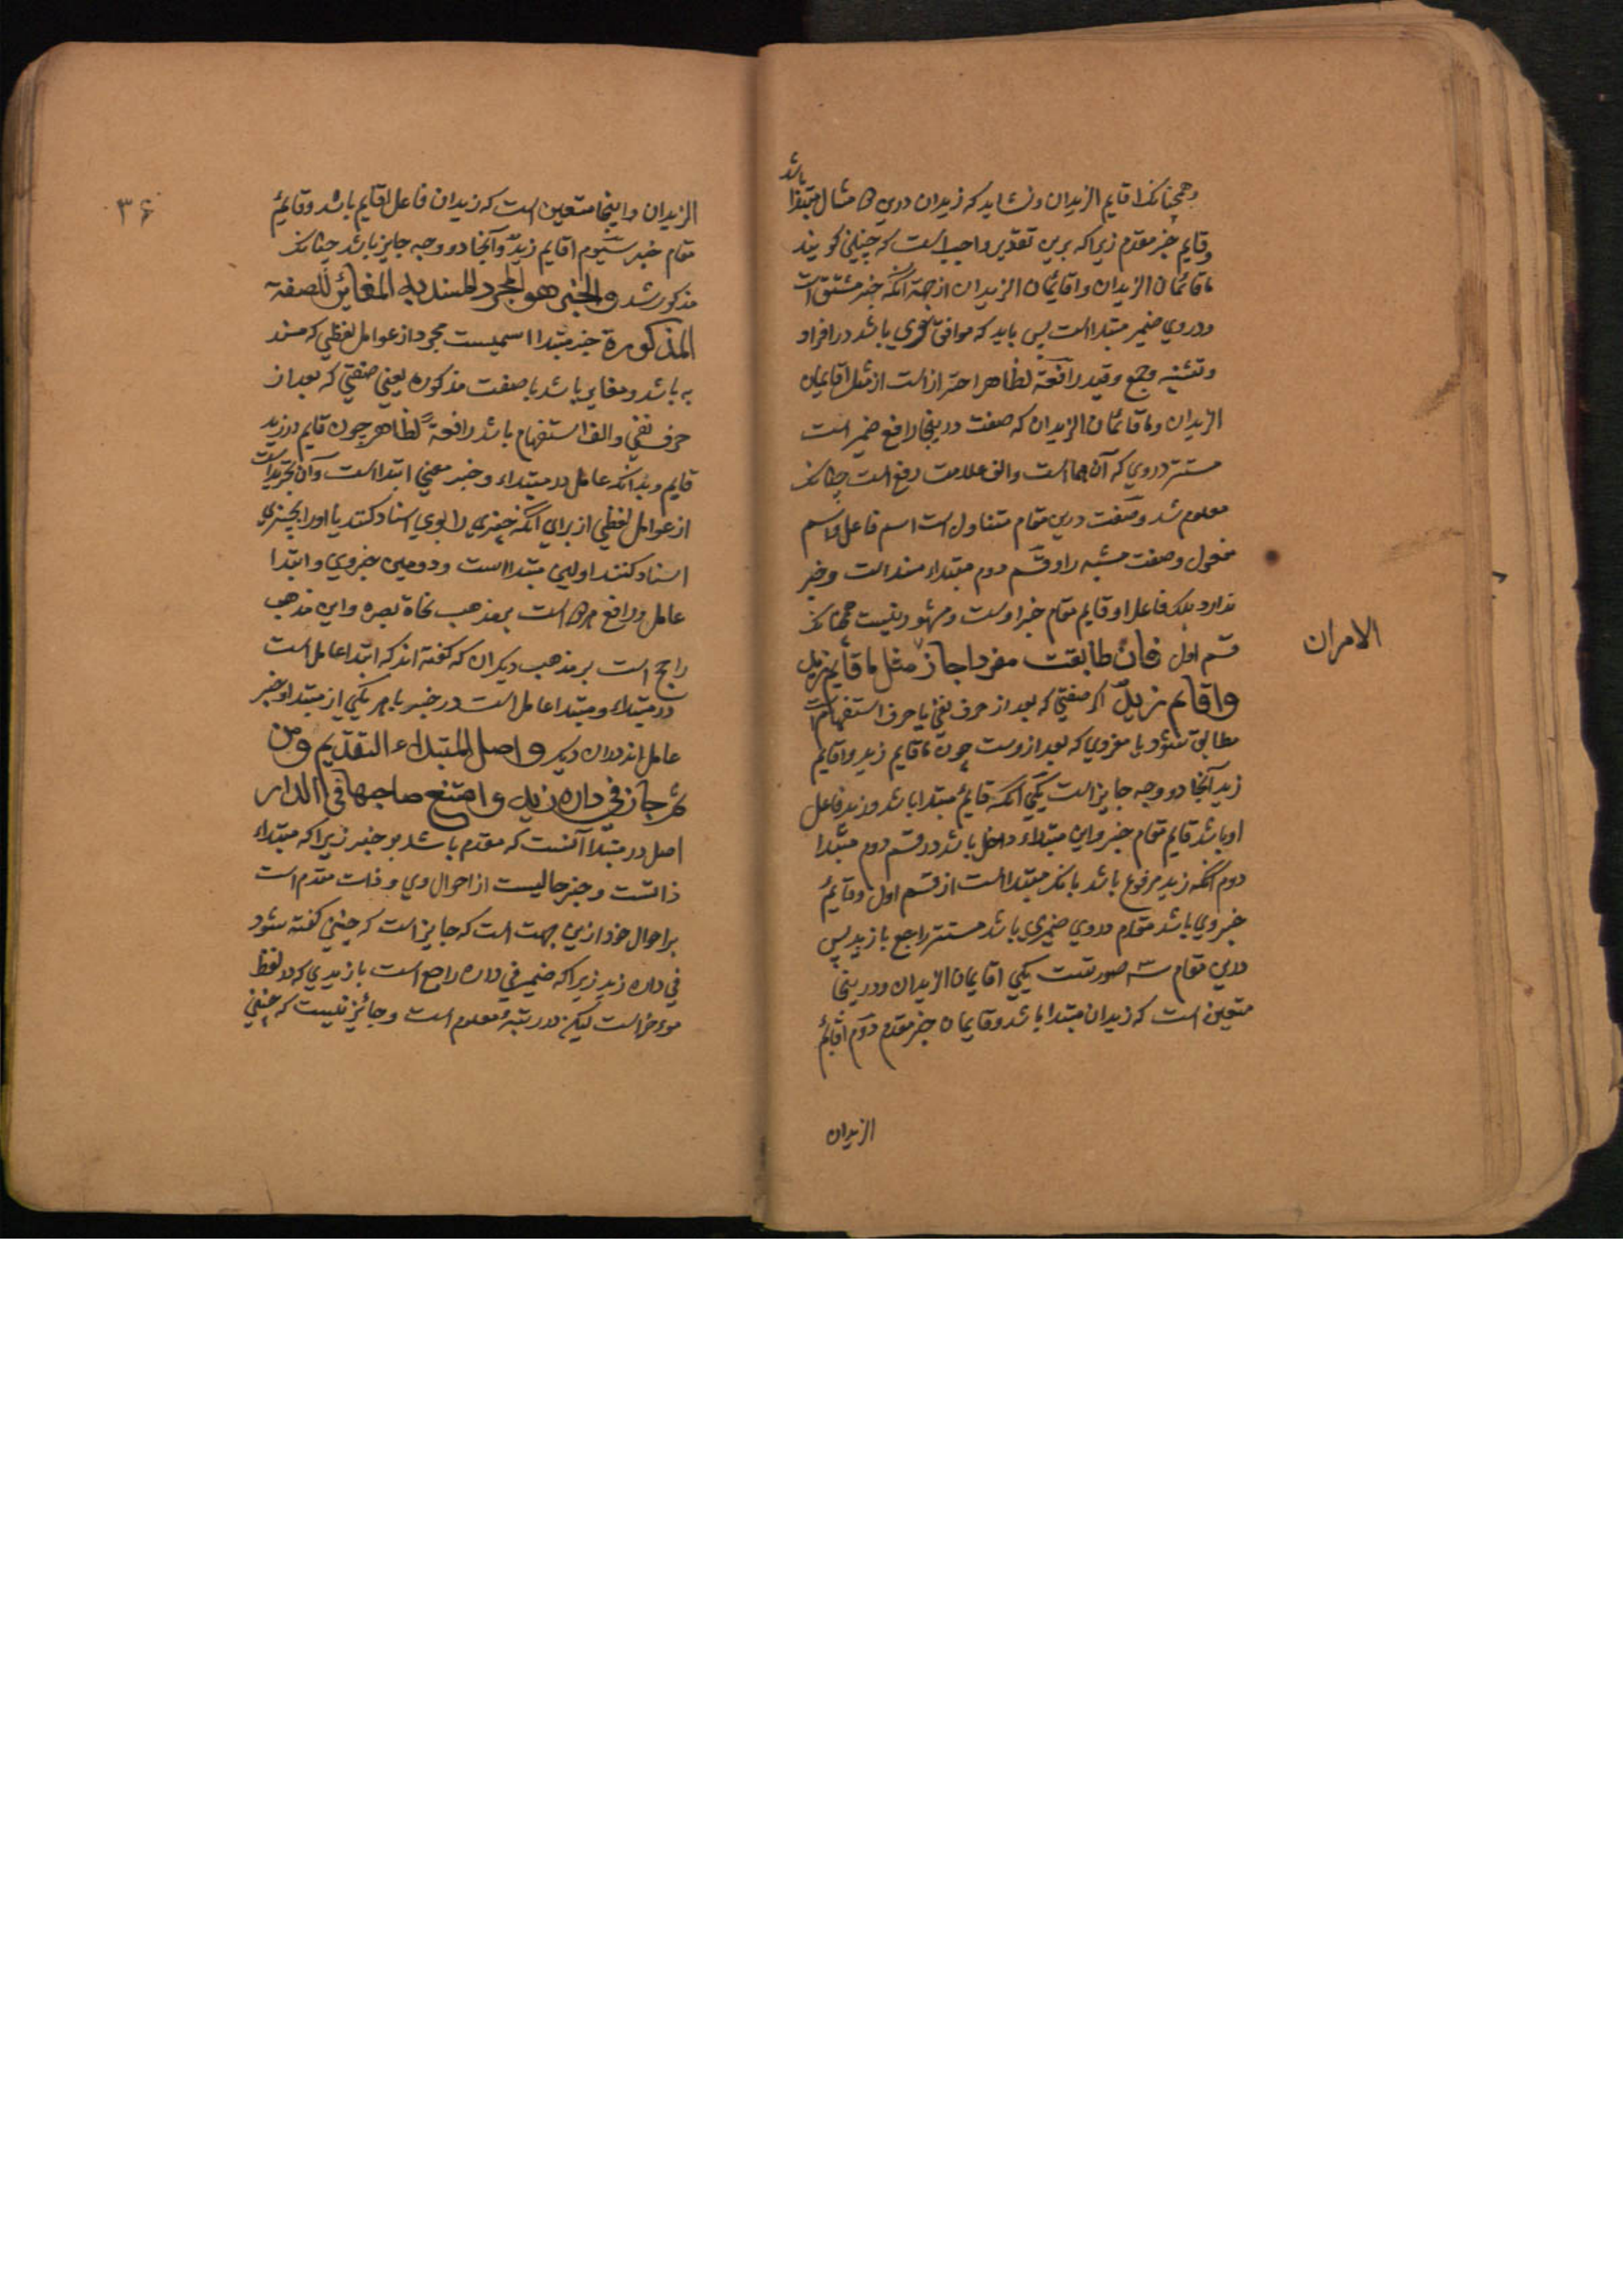 باشد
وهمچنانک اقایم الزیدان ونشاید که زیدان درین دو مثال مبتدا
وقایم خبر مقدم زیرا که برین تقدیر واجب است که چنین کویند
ما قائمان الزیدان واقائمان الزیدان از جهة آنکه خبر مشتق است
ودروی ضمیر مبتدا است پس باید که موافق وی باشد در افراد
وتثنیه وجمع وقید رافعة لظاهر احتراز است از مثل اقایمان
الزیدان وما قائمان الزیدان که صفت درینجا رافع ضمیر است
مستتر دروی که آن هما است والف علامت رفع است چنانک
معلوم شد وصفت درین مقام متناول است اسم فاعل واسم
مفعول وصفت مشبه را وقسم دوم مبتداء مسند است وخبر
ندارد بلک فاعل او قایم مقام خبر اوست ومشهور نیست همچنانک
الامران
قسم اول فان طابقت مفردا جاز مثل ما قایم زید
واقایم زید اکر صفتی که بعد از حرف نفی یا حرف استفهام است
مطابق شود با مفردی که بعد ازوست چون ما قایم زید واقایم
زید آنجا دو وجه جایز است یکی آنکه قایم مبتدا باشد وزید فاعل
او باشد قایم مقام خبر واین مبتداء داخل باشد در قسم دوم مبتدا
دوم آنکه زید مرفوع باشد بانک مبتدا است از قسم اول وقایم
خبر وی باشد مقدم ودروی ضمیری باشد مستتر راجع با زید پس
درین مقام سه صورتست یکی اقایمان الزیدان ودرینجا
متعین است که زیدان مبتدا باشد وقایمان خبر مقدم دوم اقایم
الزیدان
۳۶
الزیدان واینجا متعین است که زیدان فاعل اقایم باشد وقایم
مقام خبر سیوم اقایم زید وآنجا دو وجه جایز باشد چنانک
مذکور شد والخبر هو المجرد المسند به المغایر للصفة
المذکورة خبر مبتدا اسمیست مجرد از عوامل لفظی که مسند
به باشد ومغایر باشد با صفت مذکوره یعنی صفتی که بعد از
حرف نفی والف استفهام باشد رافعة لظاهر چون قایم در زید
قایم وبدانکه عامل در مبتداء وخبر معنی ابتدا است وآن تجرید است
از عوامل لفظی از برای آنکه چیزی را بوی اسناد کنند یا او را بچیزی
اسناد کنند اولین مبتدا است ودومین خبر وی وابتدا
عامل ورافع هر دو است بمذهب نحاة بصره واین مذهب
راجح است بر مذهب دیکران که کفته اند که ابتدا عامل است
در مبتداء ومبتدا عامل است در خبر یا هر یکی از مبتدا وخبر
عامل اند در آن دیکر واصل المبتداء التقدیم ومن
ثم جاز فی داره زید وامتنع صاحبها فی الدار
اصل در مبتدا آنست که مقدم باشد بر خبر زیرا که مبتداء
ذاتست وخبر حالیست از احوال وی وذات مقدم است
بر احوال خود ازین جهت است که جایز است که چنین کفته شود
فی داره زید زیرا که ضمیر فی داره راجع است با زیدی که در لفظ
موءخر است لیکن در رتبه مقدم است وجائز نیست که چنین